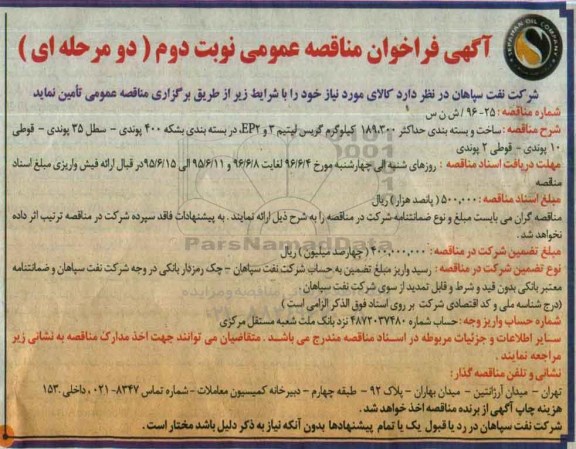 SEPAHAN OIL COMPANY
آگهی فراخوان مناقصه عمومی نوبت دوم ( دو مرحله ای )
شرکت نفت سپاهان در نظر دارد کالای مورد نیاز خود را با شرایط زیر از طریق برگزاری مناقصه عمومی تأمین نماید
شماره مناقصه: ۲۵-۹۶ / ش ن س
شرح مناقصه: ساخت و بسته بندی حداکثر ۱۸۹،۳۰۰ کیلوگرم گریس لیتیم ۳ و EP۲، در بسته بندی بشکه ۴۰۰ پوندی - سطل ۳۵ پوندی - قوطی
۱۰ پوندی - قوطی ۲ پوندی
مهلت دریافت اسناد مناقصه : روزهای شنبه الی چهارشنبه مورخ ۹۶/۶/۴ لغایت ۹۶/۶/۸ و ۹۵/۶/۱۱ الی ۹۵/۶/۱۵ در قبال ارائه فیش واریزی مبلغ اسناد
مناقصه
مبلغ اسناد مناقصه: ۵۰۰،۰۰۰ ( پانصد هزار ) ریال
مناقصه گران می بایست مبلغ و نوع ضمانتنامه شرکت در مناقصه را به شرح ذیل ارائه نمایند . به پیشنهادات فاقد سپرده شرکت در مناقصه ترتیب اثر داده
نخواهد شد.
مبلغ تضمین شرکت در مناقصه : ۴۰۰،۰۰۰،۰۰۰ ( چهارصد میلیون ) ریال
نوع تضمین شرکت در مناقصه : رسید واریز مبلغ تضمین به حساب شرکت نفت سپاهان - چک رمزدار بانکی در وجه شرکت نفت سپاهان و ضمانتنامه
معتبر بانکی بدون قید و شرط و قابل تمدید از سوی شرکت نفت سپاهان
(درج شناسه ملی و کد اقتصادی شرکت بر روی اسناد فوق الذکر الزامی است )
شماره حساب واریز وجه: حساب شماره ۴۸۷۲۰۳۷۴۸۰ نزد بانک ملت شعبه مستقل مرکزی
سایر اطلاعات و جزئیات مربوطه در اسناد مناقصه مندرج می باشد . متقاضیان می توانند جهت اخذ مدارک مناقصه به نشانی زیر
مراجعه نمایند .
نشانی و تلفن مناقصه گذار:
تهران - میدان آرژانتین - میدان بهاران - پلاک ۹۲ - طبقه چهارم - دبیرخانه کمیسیون معاملات - شماره تماس ۸۳۴۷-۰۲۱ ، داخلی ۱۵۳.
هزینه چاپ آگهی از برنده مناقصه اخذ خواهد شد.
شرکت نفت سپاهان در رد یا قبول یک یا تمام پیشنهادها بدون آنکه نیاز به ذکر دلیل باشد مختار است .
ParsNamadData